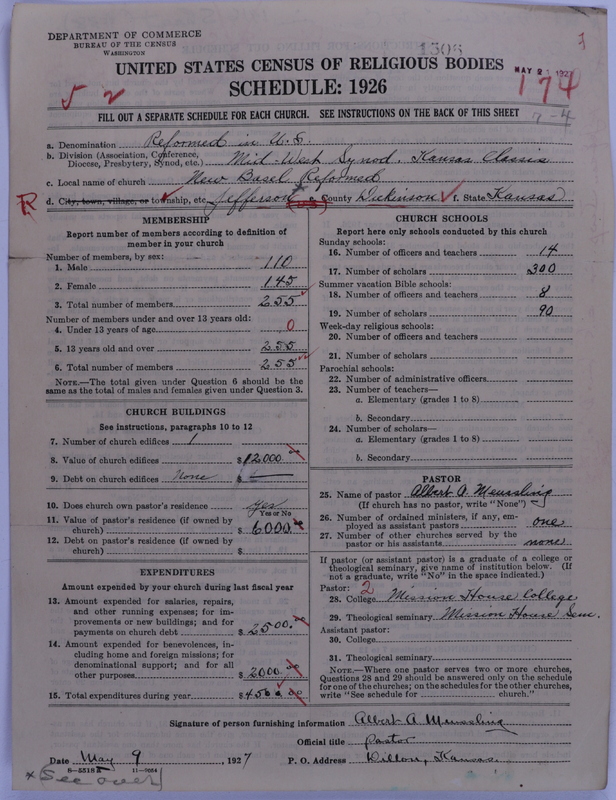 DEPARTMENT OF COMMERCE
BUREAU OF THE CENSUS
WASHINGTON
1306
UNITED STATES CENSUS OF RELIGIOUS BODIES
MAY 2 1927
SCHEDULE: 1926
5 2
174
7-4
FILL OUT A SEPARATE SCHEDULE FOR EACH CHURCH. SEE INSTRUCTIONS ON THE BACK OF THIS SHEET
a. Denomination Reformed in U.S.
b. Division (Association, Conference, Diocese, Presbytery, Synod, etc.) Mid-West Synod. Kansas Classis
c. Local name of church New Basel Reformed
R d. City, town, village, or township, etc. Jefferson e. County Dickinson f. State Kansas
MEMBERSHIP
Report number of members according to definition of
member in your church
Number of members, by sex:
1. Male 110
2. Female 145
3. Total number of members 255
Number of members under and over 13 years old:
4. Under 13 years of age 0
5. 13 years old and over 255
6. Total number of members 255
NOTE.—The total given under Question 6 should be the
same as the total of males and females given under Question 3.
CHURCH BUILDINGS
See instructions, paragraphs 10 to 12
7. Number of church edifices 1
8. Value of church edifices $12000.00
9. Debt on church edifices None $
10. Does church own pastor's residence Yes
Yes or No
11. Value of pastor's residence (if owned by
church) $6000.00
12. Debt on pastor's residence (if owned by
church) $
EXPENDITURES
Amount expended by your church during last fiscal year
13. Amount expended for salaries, repairs,
and other running expenses; for im-
provements or new buildings; and for
payments on church debt $2500.00
14. Amount expended for benevolences, in-
cluding home and foreign missions; for
denominational support; and for all
other purposes $2000.00
15. Total expenditures during year $4500.00
CHURCH SCHOOLS
Report here only schools conducted by this church
Sunday schools:
16. Number of officers and teachers 14
17. Number of scholars 300
Summer vacation Bible schools:
18. Number of officers and teachers 8
19. Number of scholars 90
Week-day religious schools:
20. Number of officers and teachers
21. Number of scholars
Parochial schools:
22. Number of administrative officers
23. Number of teachers—
a. Elementary (grades 1 to 8)
b. Secondary
24. Number of scholars—
a. Elementary (grades 1 to 8)
b. Secondary
PASTOR
25. Name of pastor Albert A. Meussling
(If church has no pastor, write "None")
26. Number of ordained ministers, if any, em-
ployed as assistant pastors one
27. Number of other churches served by the
pastor or his assistants none
If pastor (or assistant pastor) is a graduate of a college or
theological seminary, give name of institution below. (If
not a graduate, write "No" in the space indicated.)
Pastor: 2
28. College Mission House College
29. Theological seminary Mission House Sem.
Assistant pastor:
30. College
31. Theological seminary
NOTE.—Where one pastor serves two or more churches,
Questions 28 and 29 should be answered only on the schedule
for one of the churches; on the schedules for the other churches,
write "See schedule for ........ church."
Signature of person furnishing information Albert A. Meussling
Official title Pastor
Date May 9, 1927 P. O. Address Dillon, Kansas.
8-5518 11-9084
* See over